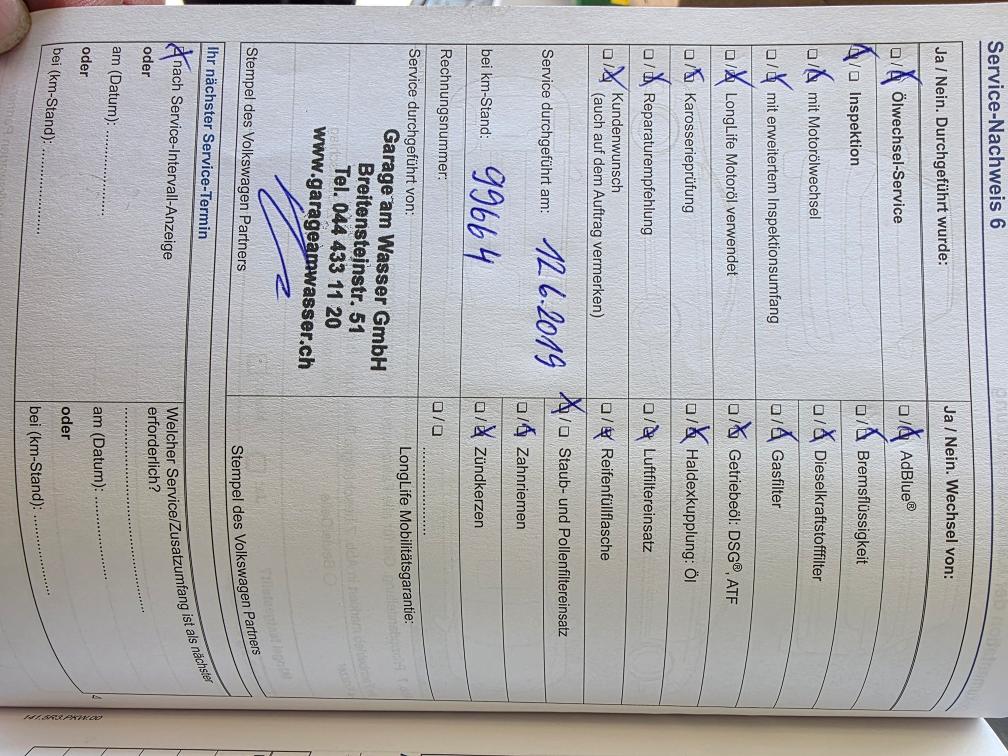 Service-Nachweis 6
Ja / Nein. Durchgeführt wurde:
☐ / ☒ Ölwechsel-Service
☒ / ☐ Inspektion
☐ / ☒ mit Motorölwechsel
☐ / ☒ mit erweitertem Inspektionsumfang
☐ / ☒ LongLife Motoröl verwendet
☐ / ☒ Karosserieprüfung
☐ / ☒ Reparaturempfehlung
☐ / ☒ Kundenwunsch
(auch auf dem Auftrag vermerken)
Service durchgeführt am: 12.6.2019
bei km-Stand: 99664
Rechnungsnummer:
Service durchgeführt von:
Garage am Wasser GmbH
Breitensteinstr. 51
Tel. 044 433 11 20
www.garageamwasser.ch
Stempel des Volkswagen Partners
Ja / Nein. Wechsel von:
☐ / ☒ AdBlue®
☐ / ☒ Bremsflüssigkeit
☐ / ☒ Dieselkraftstofffilter
☐ / ☒ Gasfilter
☐ / ☒ Getriebeöl: DSG®, ATF
☐ / ☒ Haldexkupplung: Öl
☐ / ☒ Luftfiltereinsatz
☐ / ☒ Reifenfüllflasche
☒ / ☐ Staub- und Pollenfiltereinsatz
☐ / ☒ Zahnriemen
☐ / ☒ Zündkerzen
☐ / ☐ ....................
LongLife Mobilitätsgarantie:
Stempel des Volkswagen Partners
Ihr nächster Service-Termin
☒ nach Service-Intervall-Anzeige
oder
am (Datum): ....................
oder
bei (km-Stand): ....................
Welcher Service/Zusatzumfang ist als nächster
erforderlich?
..............................
am (Datum): ....................
oder
bei (km-Stand): ....................
141.5R3.PKW.00